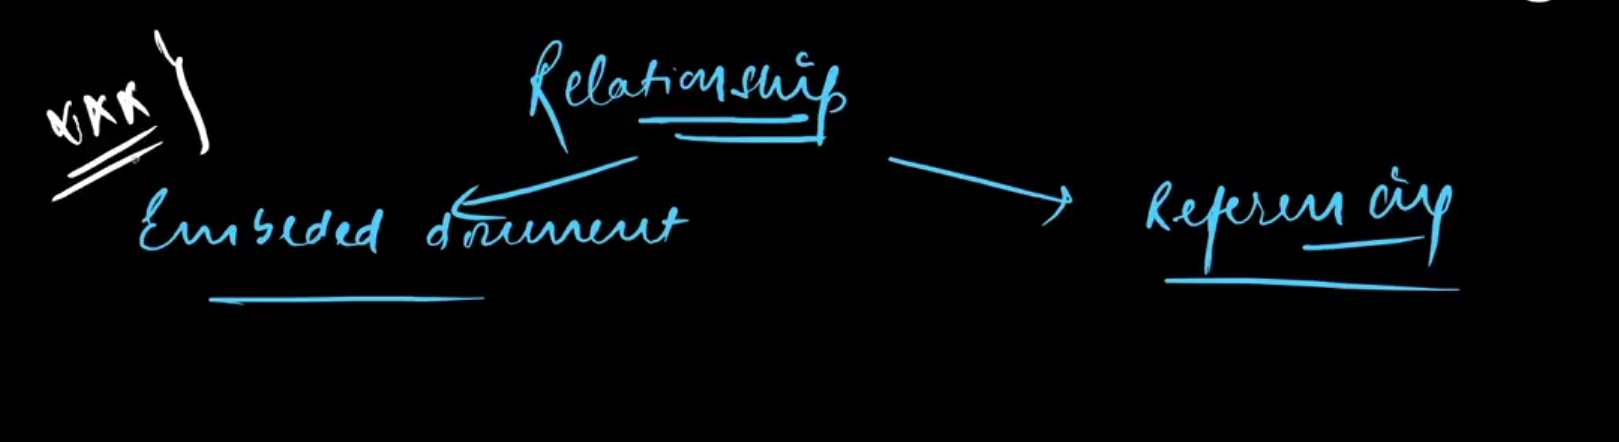 Relationship
Embeded document
Referencing